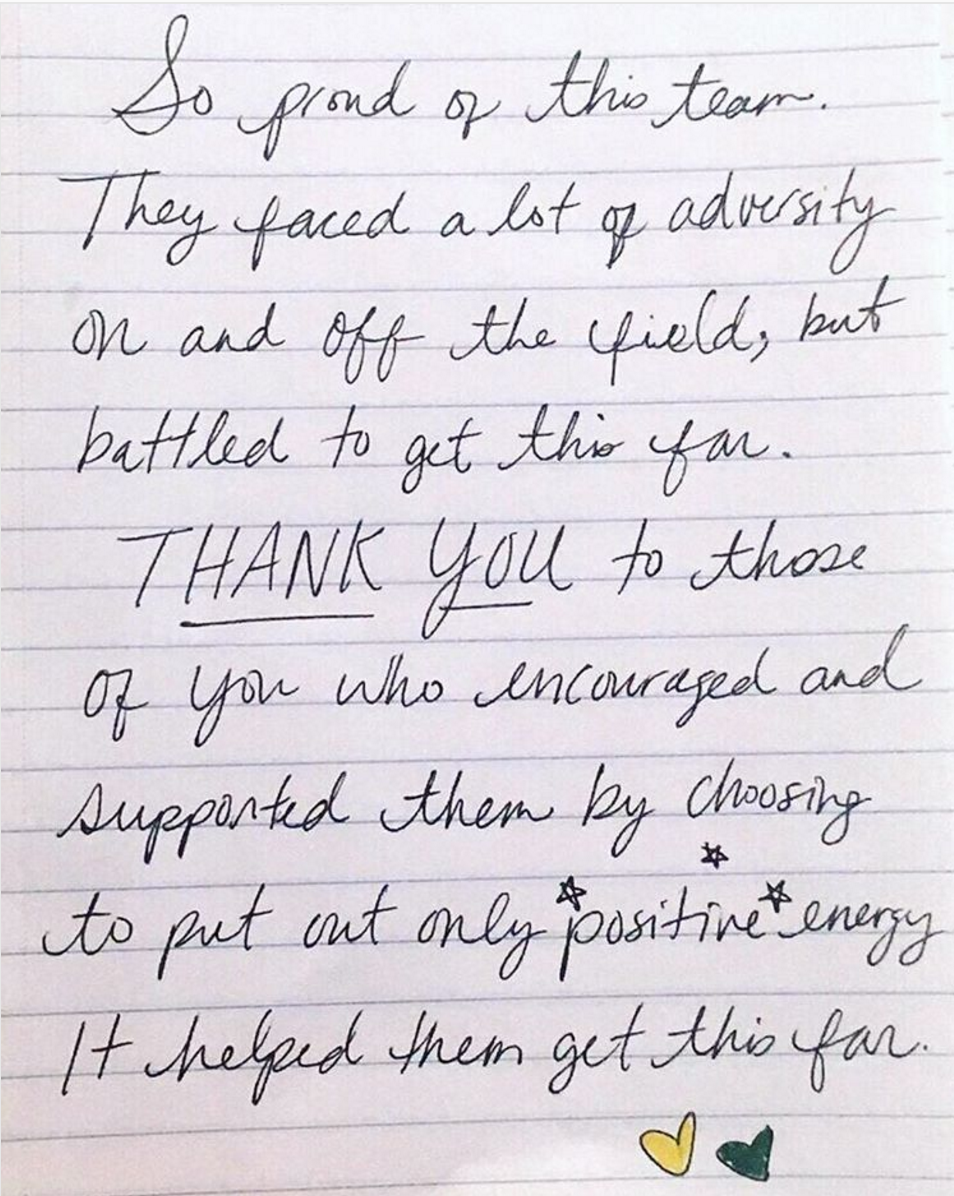 So proud of this team.
They faced a lot of adversity
on and off the field, but
battled to get this far.
THANK YOU to those
of you who encouraged and
supported them by choosing
to put out only positive energy
It helped them get this far.